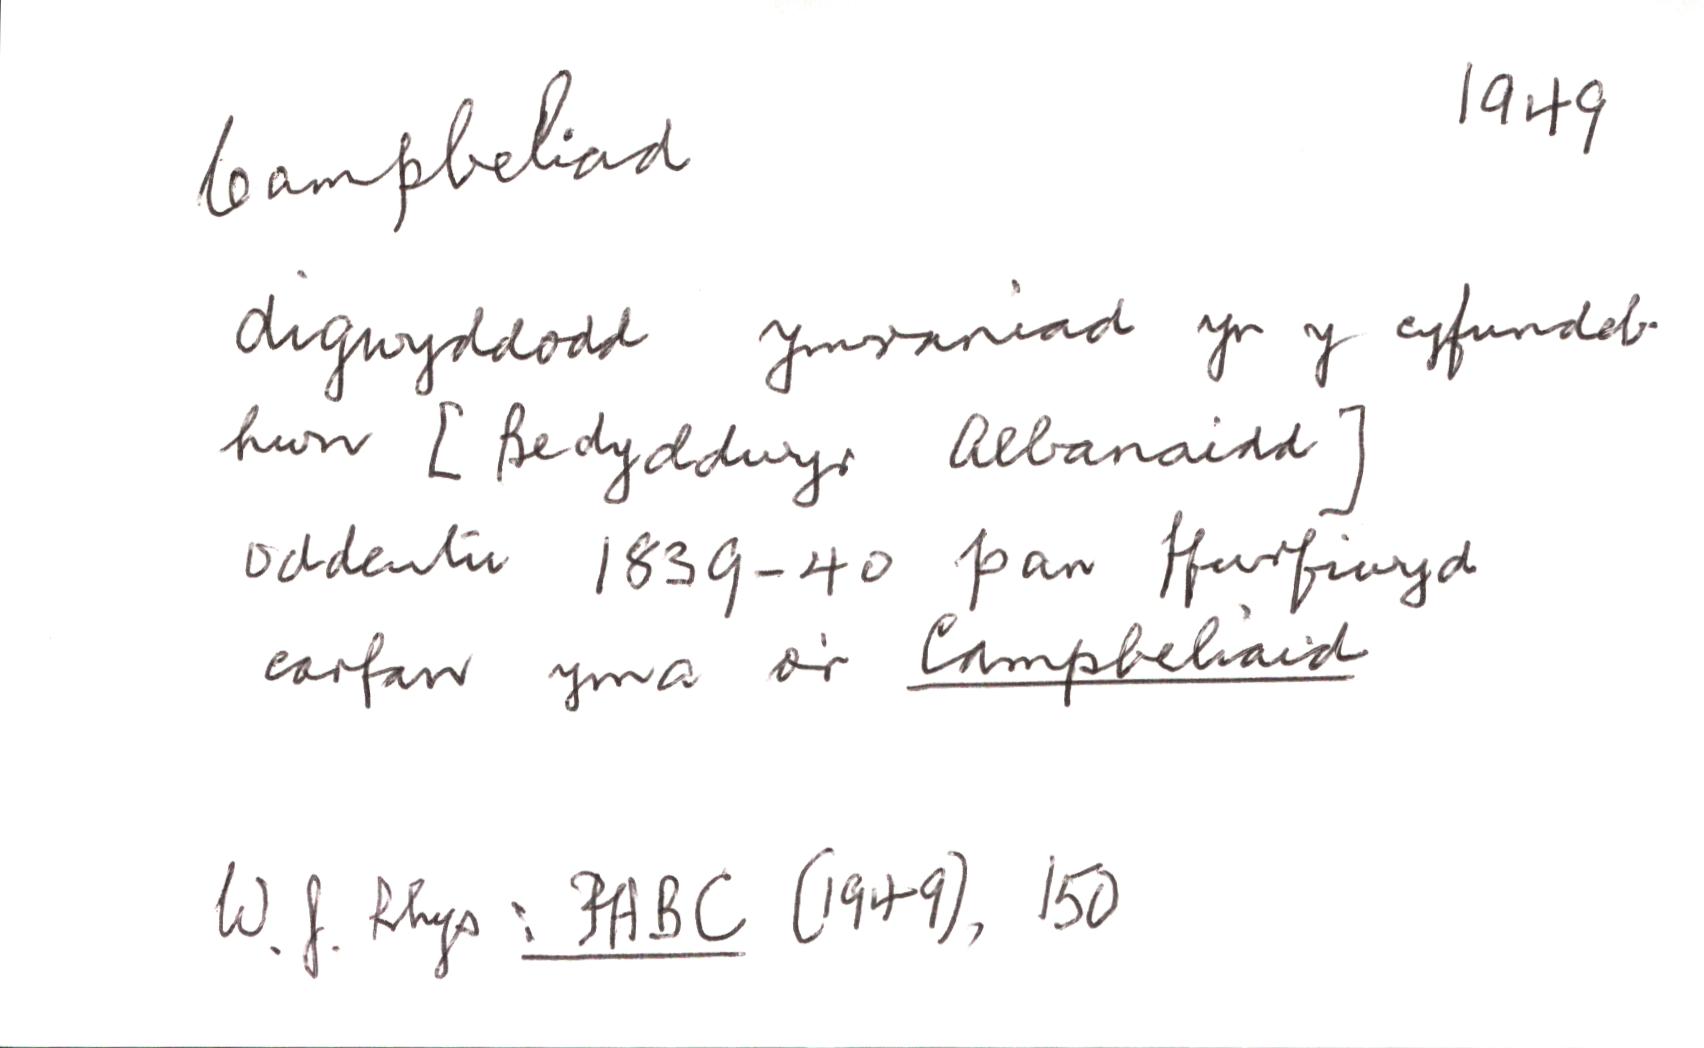 1949
Campbeliad
digwyddodd ymraniad yn y cyfundeb
hwn [Bedyddwyr Albanaidd]
oddeutu 1839-40 pan ffurfiwyd
carfan yma o'r Campbeliaid
W. J. Rhys : PABC (1949), 150